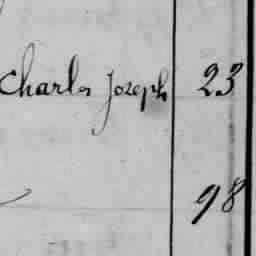 Charles Joseph 23
98